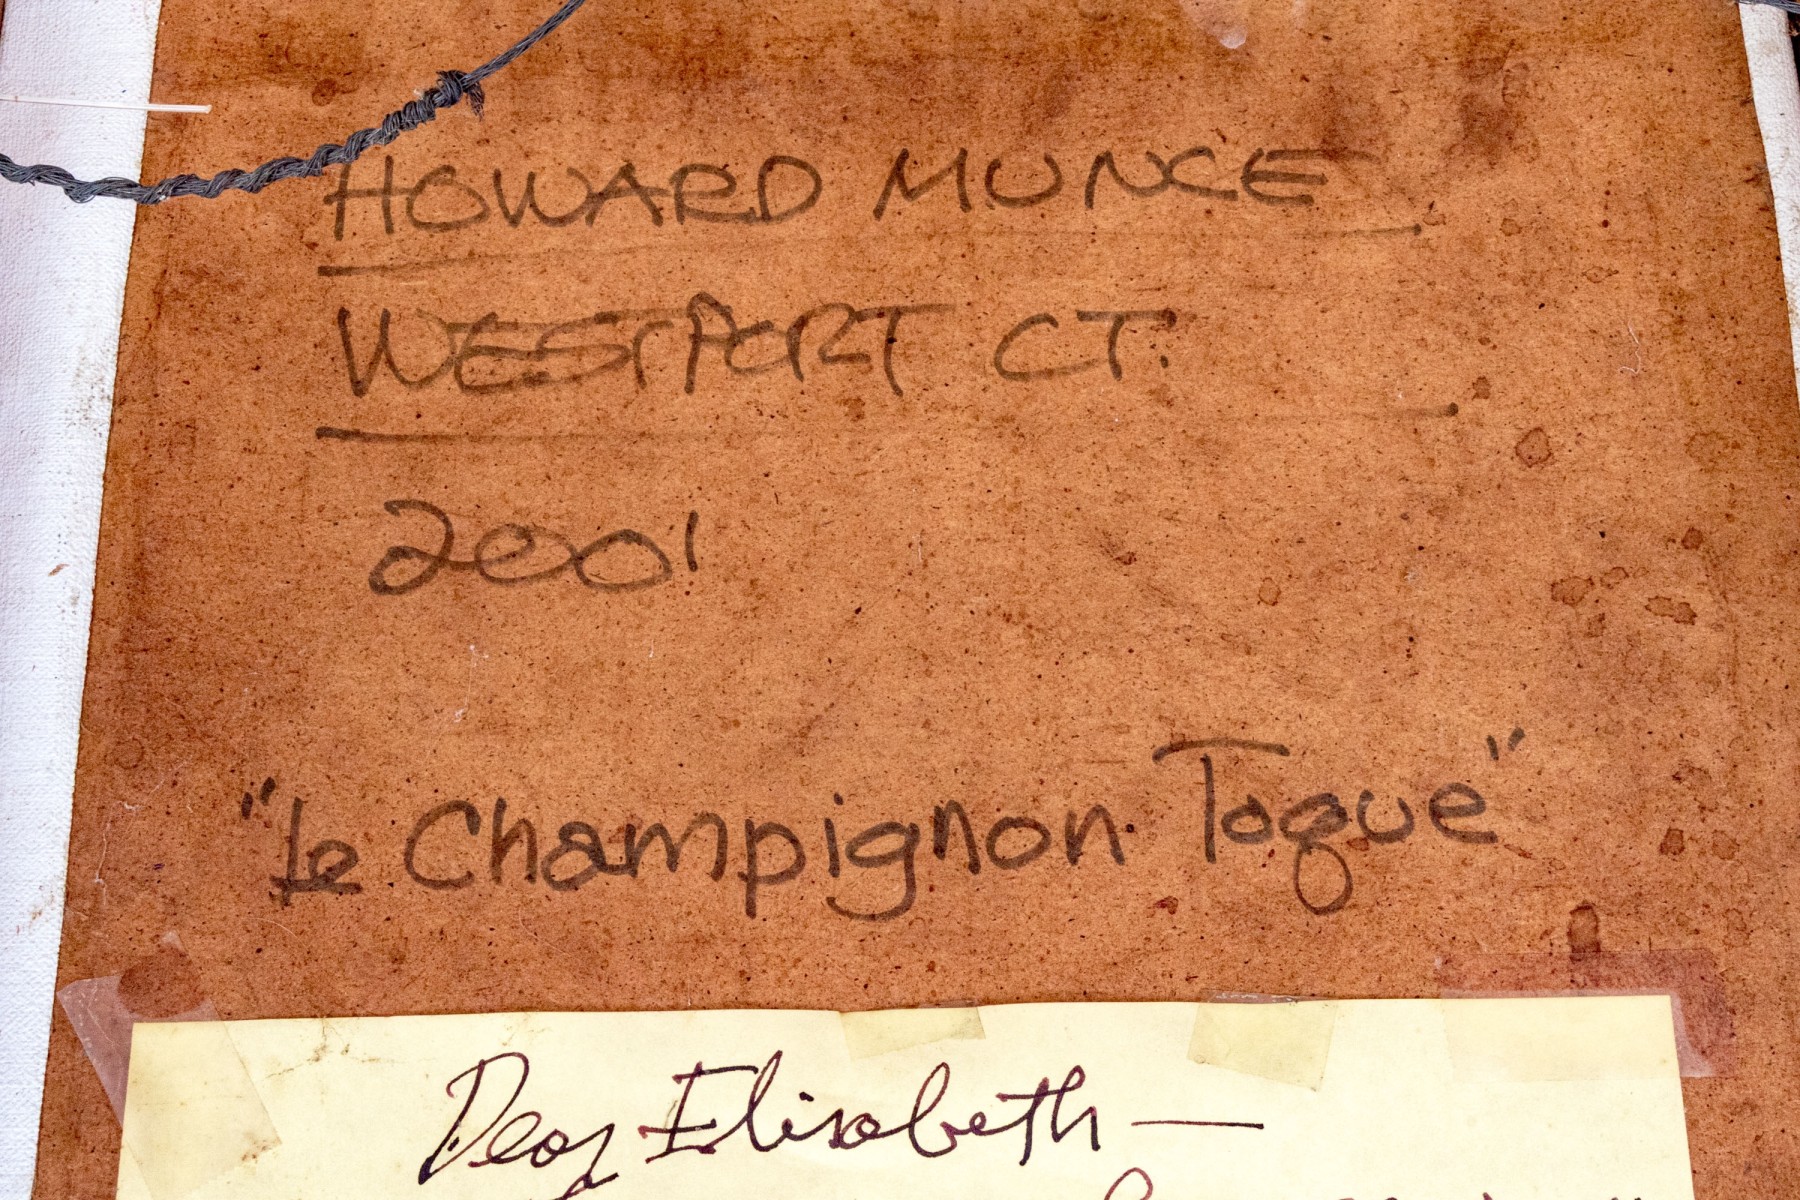 HOWARD MUNCE
WESTPORT CT.
2001
"Le Champignon Toque"
Dear Elisabeth —